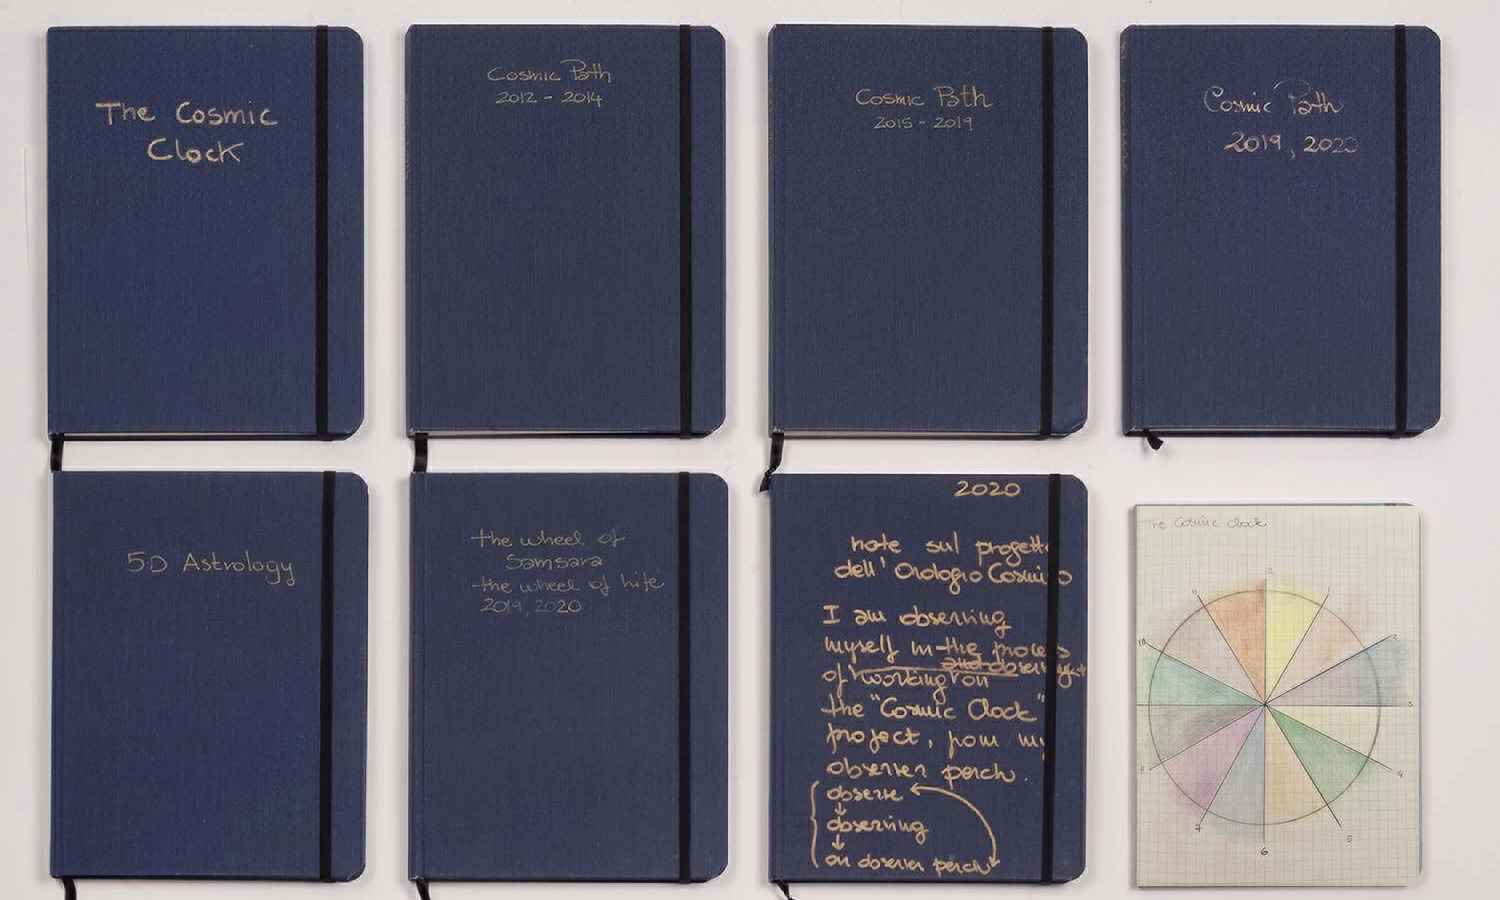 The Cosmic
Clock
Cosmic Path
2012 - 2014
Cosmic Path
2015 - 2019
Cosmic Path
2019, 2020
5D Astrology
the wheel of
Samsara
the wheel of life
2019, 2020
2020
note sul progetto
dell' Orologio Cosmico
I am observing
myself in the process
of working on
the "Cosmic Clock"
project, from my
observer perch.
observe
observing
an observer perch
The Cosmic Clock
2
3
4
5
6
7
10